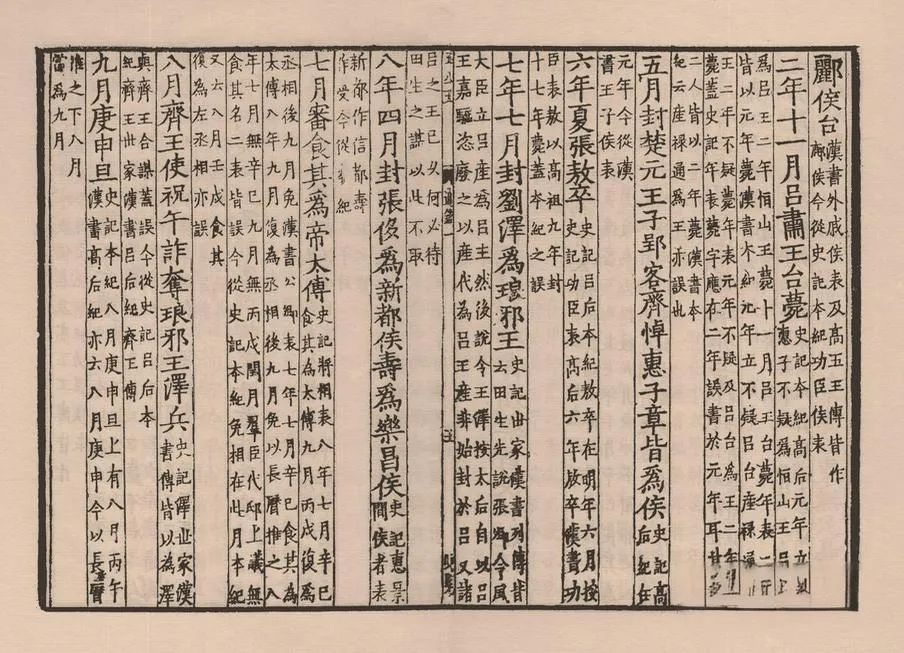 酈侯台漢書外戚侯表及高五王傳皆作
鄜侯今從史記本紀功臣侯表
二年十一月呂肅王台薨史記本紀高后元年立
惠子不疑為恒山王呂
為呂王二年恒山王薨十一月呂王台薨年表二
皆以元年薨漢書本紀元年立不疑呂台產祿通
王二年不疑薨年表元年不疑及呂台為王二年
薨蓋史記年表薨字應在二年誤書於元年耳
二人皆以二年薨漢書本
紀云座祿通為王亦誤也
五月封楚元王子郢客齊悼惠子章皆為侯史記高
后紀在
元年今從漢
書王子侯表
六年夏張敖卒史記呂后本紀敖卒在明年六月按
史記功臣表高后六年敖卒漢書功
臣表敖以高祖九年封
十七年薨蓋本紀之誤
七年七月封劉澤為琅邪王史記世家漢書列傳皆
云田生先說張卿令風
大臣立呂產為呂王然後說令王澤按太后自以呂
王嘉驕恣廢之以產代為呂王產非始封於呂又諸
呂之王已久何必待
田生之謀以此不取
八年四月封張侈為新都侯壽為樂昌侯史記惠景
間侯者表
新都作信都壽
作受今從本紀
七月審食其為帝太傅史記將相表八年七月辛巳
食其為太傅九月丙戌復為
丞相後九月免漢書公卿表七年七月辛巳食其為
太傅八年九月復為丞相後九月免以長曆推之八
年七月無辛巳九月無丙戌閏月羣臣代邸上議無
食其名二表皆誤今從史記本紀免相在此月本紀
又云八月壬戌食其
復為左丞相亦誤
八月齊王使祝午詐奪琅邪王澤兵史記澤世家漢
書傳皆以為澤
與齊王合謀蓋誤今從史記呂后本
紀齊王世家漢書呂后紀齊王傳
九月庚申旦史記本紀八月庚申旦上有八月丙午
漢書高后紀亦云八月庚申今以長曆
推之下八月
當為九月